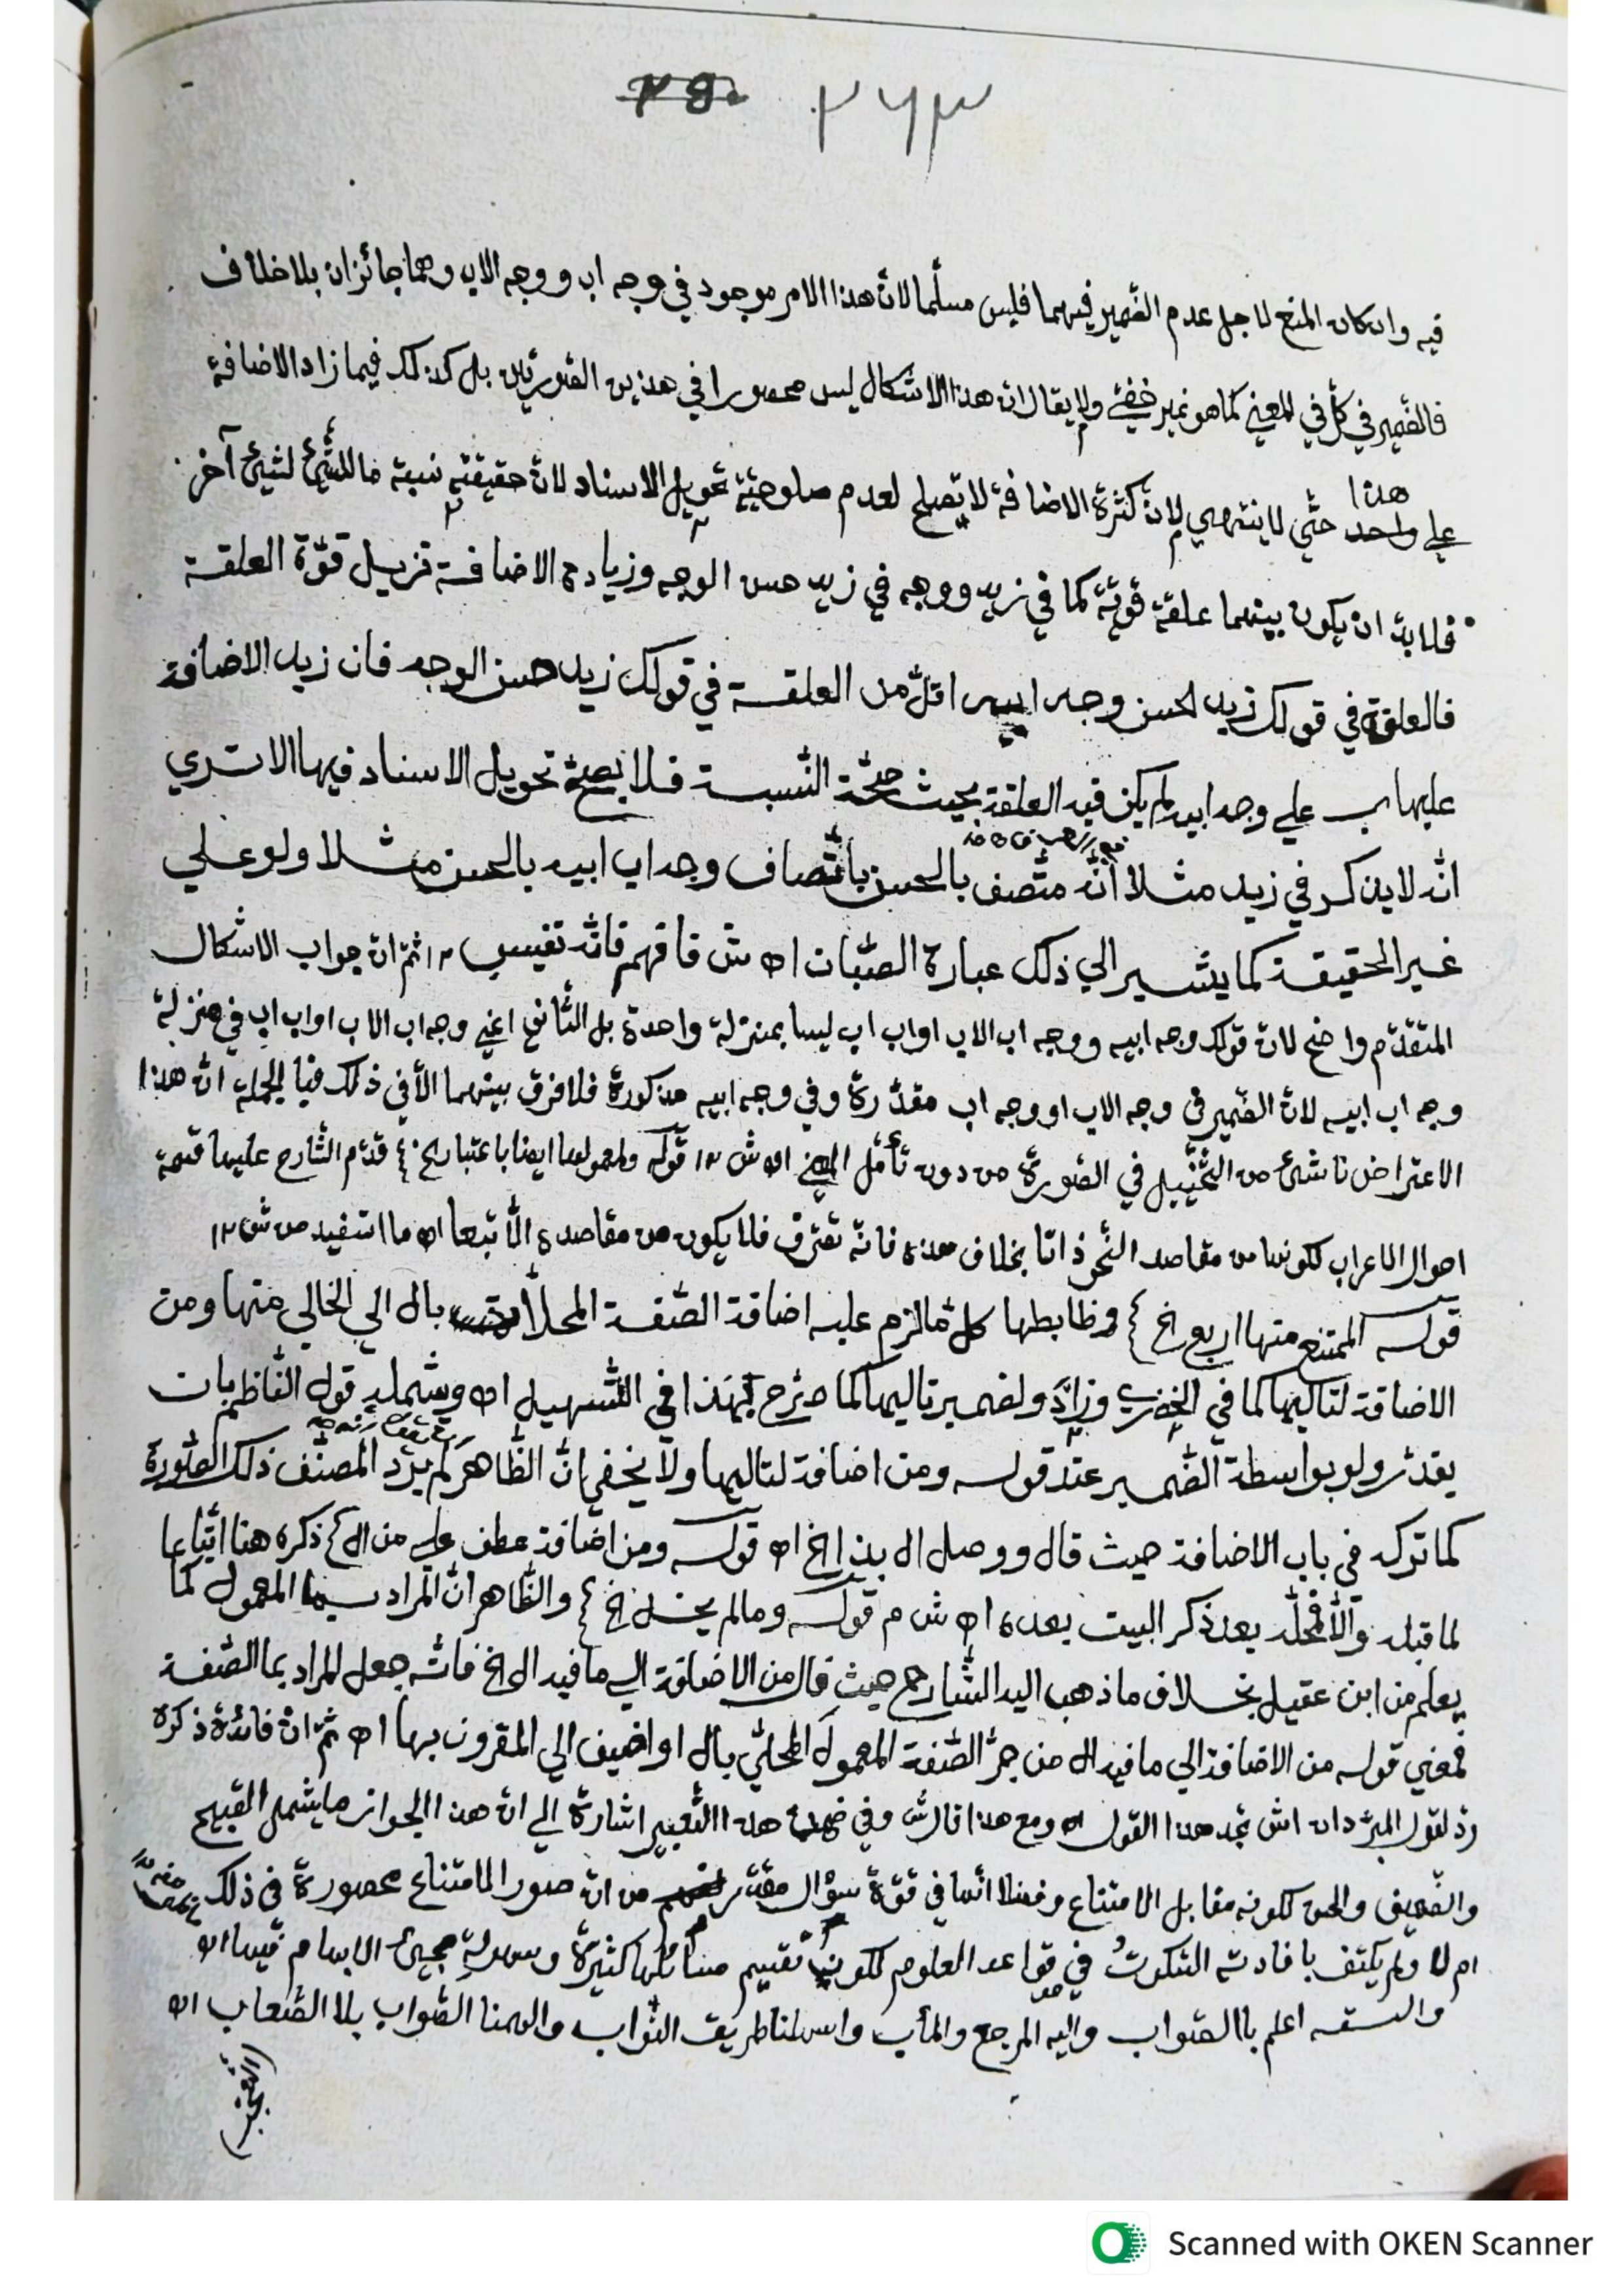 ٢٥٠ ٢٦٣
فيه وان كان المنع لاجل عدم الضمير فيهما فليس مسلّما لانّ هذا الامر موجود في وجه اب و وجه الاب وهما جائزان بلا خلاف
فالضّمير في كلّ في المعنى كما هو غير خفيّ ولا يقال انّ هذا الاشكال ليس محصورا في هذين الصّورتين بل كذلك فيما زاد الاضافة
هذا
علي واحد حتّي لا ينتهي لانّ كثرة الاضافة لا تصلح لعدم صلوحيّة تحويل الاسناد لانّ حقيقته نسبة ما للشّيئ لشيئ آخر
فلا بدّ ان يكون بينهما علقة قويّة كما في زيد ووجه في زيد حسن الوجه وزيادة الاضافة تزيل قوّة العلقة
فالعلقة في قولك زيد لحسن وجه ابيه اقلّ من العلقة في قولك زيد حسن الوجه فان زيد الاضافة
عليها علي وجه ابيه لم يكن فيه العلقة بحيث صحّة النّسبة فلا يصحّ تحويل الاسناد فيها الا تري
انّه لا يذكر في زيد مثلا انّه متّصف بالحسن باتّصاف وجه اب ابيه بالحسن مثلا ولو علي
غير الحقيقة كما يشير الي ذلك عبارة الصّبّان اه ش فافهم فانّه نفيس ١٢ ثمّ انّ جواب الاشكال
المتقدّم واضح لانّ قولك وجه ابيه ووجه اب الاب او اب اب ليسا بمنزلة واحدة بل الثّاني اعني وجه اب الاب او اب اب في منزلة
وجه اب ابيه لانّ الضّمير في وجه الاب او وجه اب مقدّرة وفي وجه ابيه مذكورة فلا فرق بينهما الّا في ذلك فبالجملة انّ هذا
الاعتراض ناشئ من التّخييل في الصّورة من دون تأمّل المعني اه ش ١٢ قوله ولمعمولها ايضا باعتبار الخ قدّم الشّارح عليها قسمة
احوال الاعراب لكونها من مقاصد النّحو ذاتا بخلاف هذه فانّه تفترق فلا يكون من مقاصده الّا تبعا اه ما استفيد من ش ١٢
قوله الممتنع منها اربع الخ وضابطها كلّ ما لزم عليه اضافة الصّفة المحلّاة بال الي الخالي منها ومن
الاضافة لتاليها كما في الخضري وزاد ولضمير تاليها كما صرّح بهذا في التّسهيل اه وشمله قول النّاظم بان
يقدّر ولو بواسطة الضّمير عند قوله ومن اضافة لتاليها ولا يخفي انّ الظّاهر لم يرد المصنّف ذلك الصّورة
كما تركه في باب الاضافة حيث قال ووصل ال بذا الخ اه قوله ومن اضافة عطف علي من ال ذكره هنا اتّباعا
لما قبله والّا فمحلّه بعد ذكر البيت بعده اه ش م قوله وما لم يخل الخ والظّاهر انّ المراد بما المعمول كما
يعلم من ابن عقيل بخلاف ما ذهب اليه الشّارح حيث قال من الاضافة الي ما فيه ال الخ فانّه جعل المراد بما الصّفة
فمعني قوله من الاضافة الي ما فيه ال من جرّ الصّفة المعمول المحلّي بال او اضيف الي المقرون بها اه ثمّ انّ فائدة ذكره
ردّ لقول المبرّد ان اش تجد هذا القول اه ومع هذا قال ش وفي هذا التّعبير اشارة الي انّ هذا الجواز ما يشمل القبيح
والضّعيف والحسن لكونه مقابل الامتناع وفضلا انّها في قوّة سؤال مقدّر من انّ صور الامتناع محصورة في ذلك
ام لا ولم يكتف بافادته السّكوت في قواعد العلوم لكون تقييم مسائلها كثيرة وسهولة مجيئ الابهام فيها اه
والله اعلم بالصّواب واليه المرجع والمأب واسلمنا طريق الثّواب والهمنا الصّواب بلا الصّعاب اه